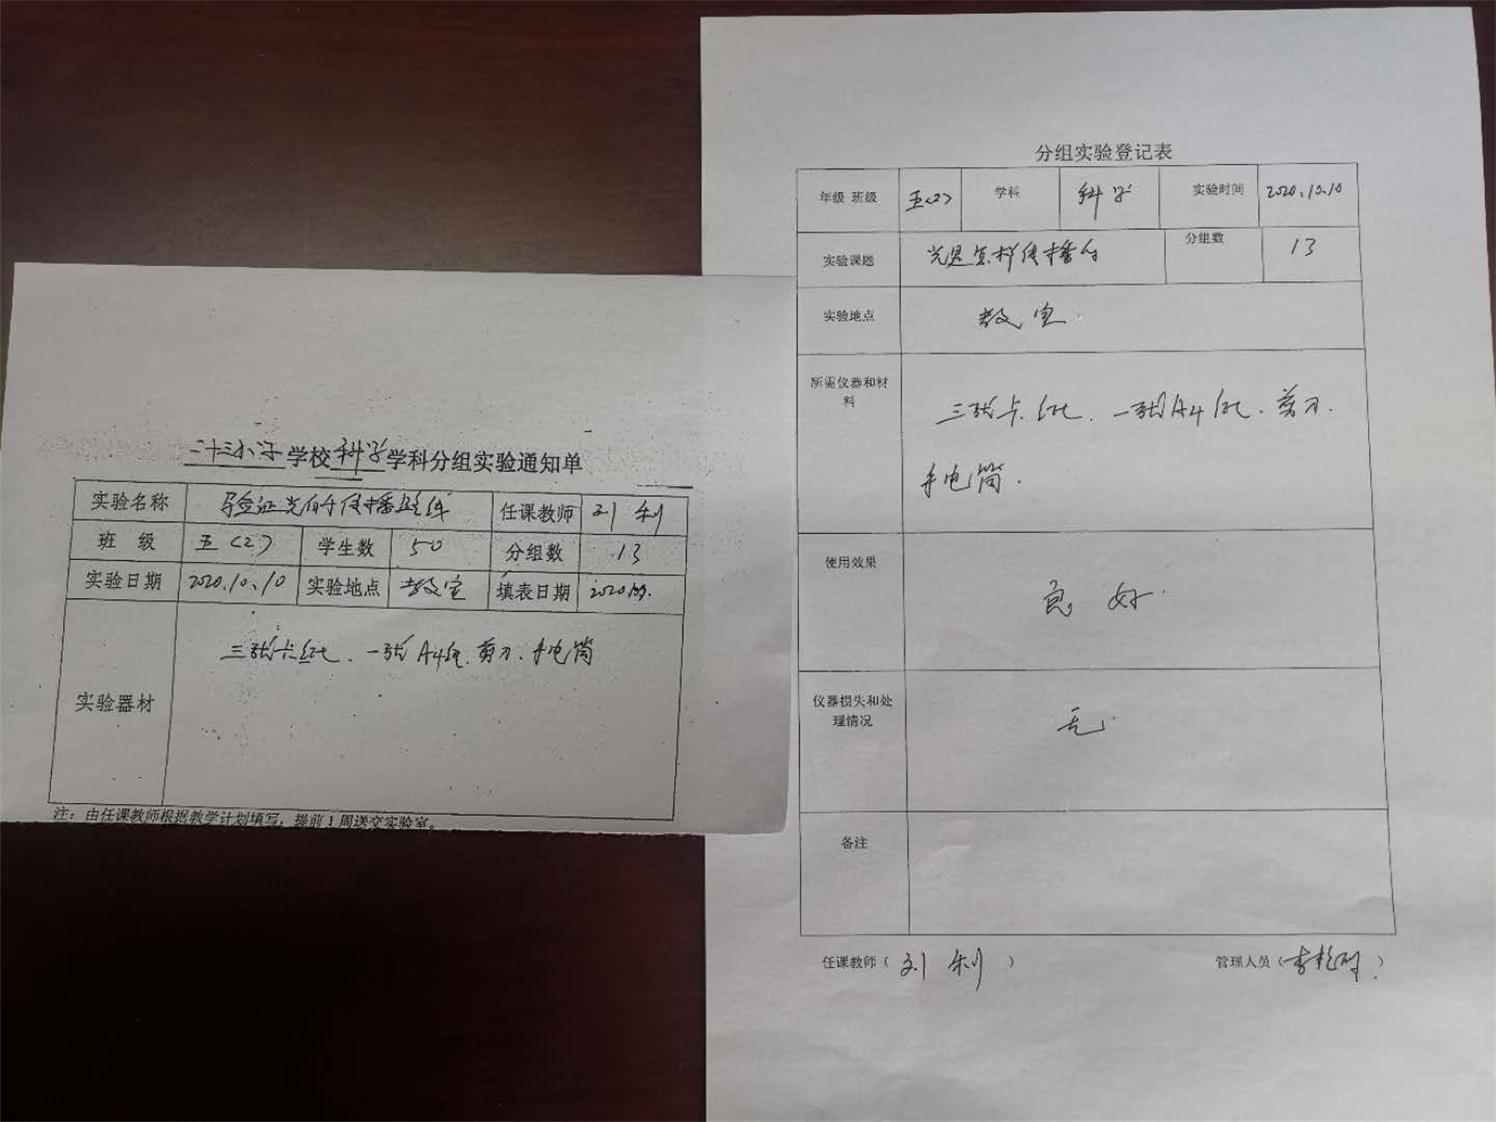 二十三小学学校科学学科分组实验通知单
实验名称 验证光的传播路线 任课教师 刘利
班 级 五(2) 学生数 50 分组数 13
实验日期 2020.10.10 实验地点 教室 填表日期
实验器材 三张卡纸、一张A4纸、剪刀、手电筒
注：由任课教师根据教学计划填写，提前1周送交实验室。
分组实验登记表
年级 班级 五(2) 学科 科学 实验时间 2020.10.10
实验课题 光是怎样传播的 分组数 13
实验地点 教室
所需仪器和材
料
三张卡纸、一张A4纸、剪刀、
手电筒.
使用效果 良好
仪器损失和处
理情况
无
备注
任课教师（刘利） 管理人员（）